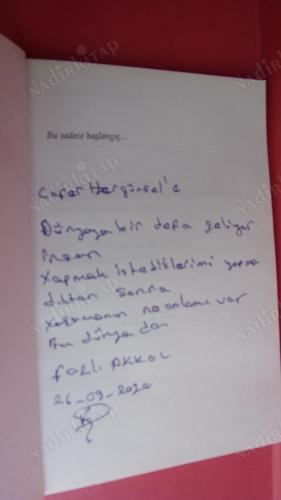 NADİRKİTAP
Bu sadece başlangıç...
Cafer Hergünsel'e
Dünyaya bir defa geliyor
insan
Yapmak istediklerimi yapma
dıktan sonra
yaşamanın ne anlamı var
Bu dünyada
FAZLI AKKOL
26-09-2020